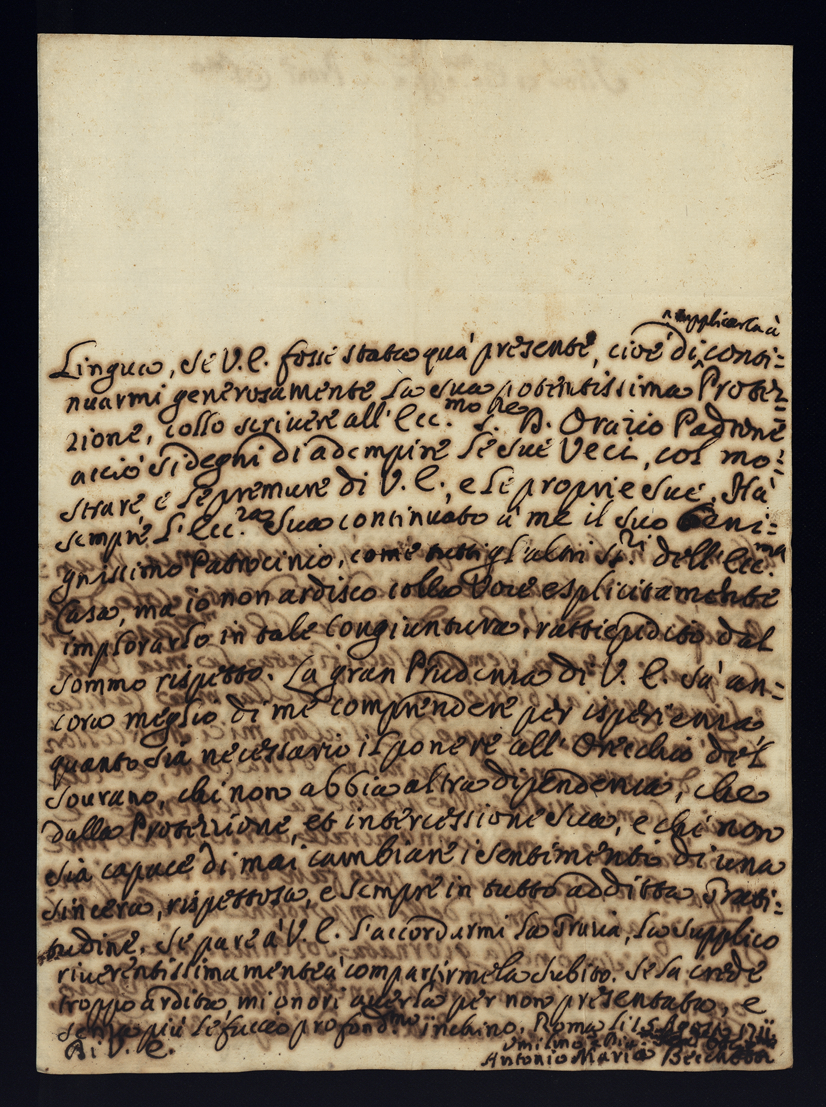 supplicarla à
Lingua, se V. E. fosse stata quà presente, cioè di conti=
nuarmi generosamente la sua potentissima Protez=
zione, collo scrivere all' Ecc.mo Sre D. Orazio Padrone
acciò si degni di adempire le sue Veci, col mo=
strare e le premure di V. E., e le proprie sue. Hà
sempre l' Ecc.za Sua continuato à me il suo beni=
gnissimo Patrocinio, come tutti gl' altri Sri dell' Ecc.ma
Casa, ma io non ardisco colla Voce esplicitamente
implorarlo in tale congiuntura, rattiepidito dal
sommo rispetto. La gran Prudenza di V. E. sà an=
cora meglio di me comprendere per isperienza
quanto sia necessario il ponere all' Orecchio del
Sovrano, chi non abbia altra dipendenza, che
dalla Protezzione, et intercessione sua, e chi non
sia capace di mai cambiare i sentimenti di una
sincera, rispettosa, e sempre in tutto additta Grati=
tudine. Se pare à V. E. l'accordarmi la Grazia, la supplico
riverentissimamente à compartirmela subito. Se la crede
troppo ardita, mi onori averla per non presentata, e
senza più le faccio profond.mo inchino. Roma li
Di V. E.
Antonio Maria